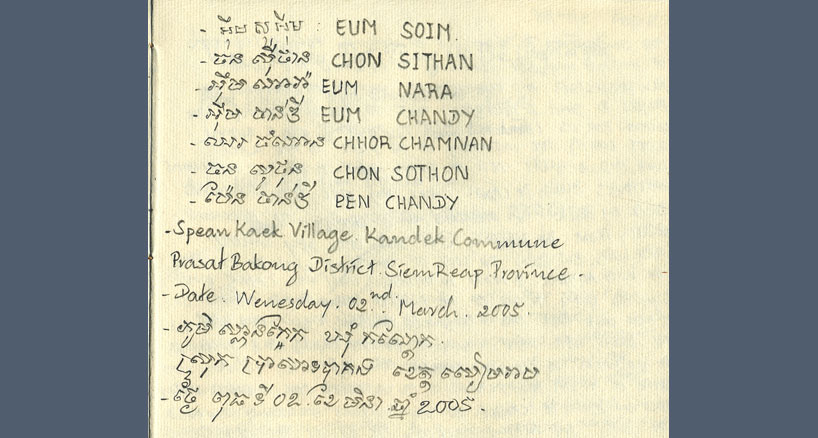 - អ៊ឹម សូអ៊ីម : EUM SOIM.
- ចន ស៊ីថាន CHON SITHAN
- អ៊ឹម ណារ៉ា EUM NARA
- អ៊ឹម ចាន់ឌី EUM CHANDY
- ឈរ ចំណាន CHHOR CHAMNAN
- ចន សុថុន CHON SOTHON
- ប៉ែន ចាន់ឌី PEN CHANDY
- Spean Kaek Village. Kandek Commune
Prasat Bakong District. Siem Reap. Province.
- Date. Wenesday. 02nd. March. 2005.
- ភូមិ ស្ពានក្អែក ឃុំ កណ្ដែក.
ស្រុក ប្រាសាទបាគង ខេត្ត សៀមរាប
- ថ្ងៃ ពុធ ទី 02. ខែ មិនា. ឆ្នាំ 2005.